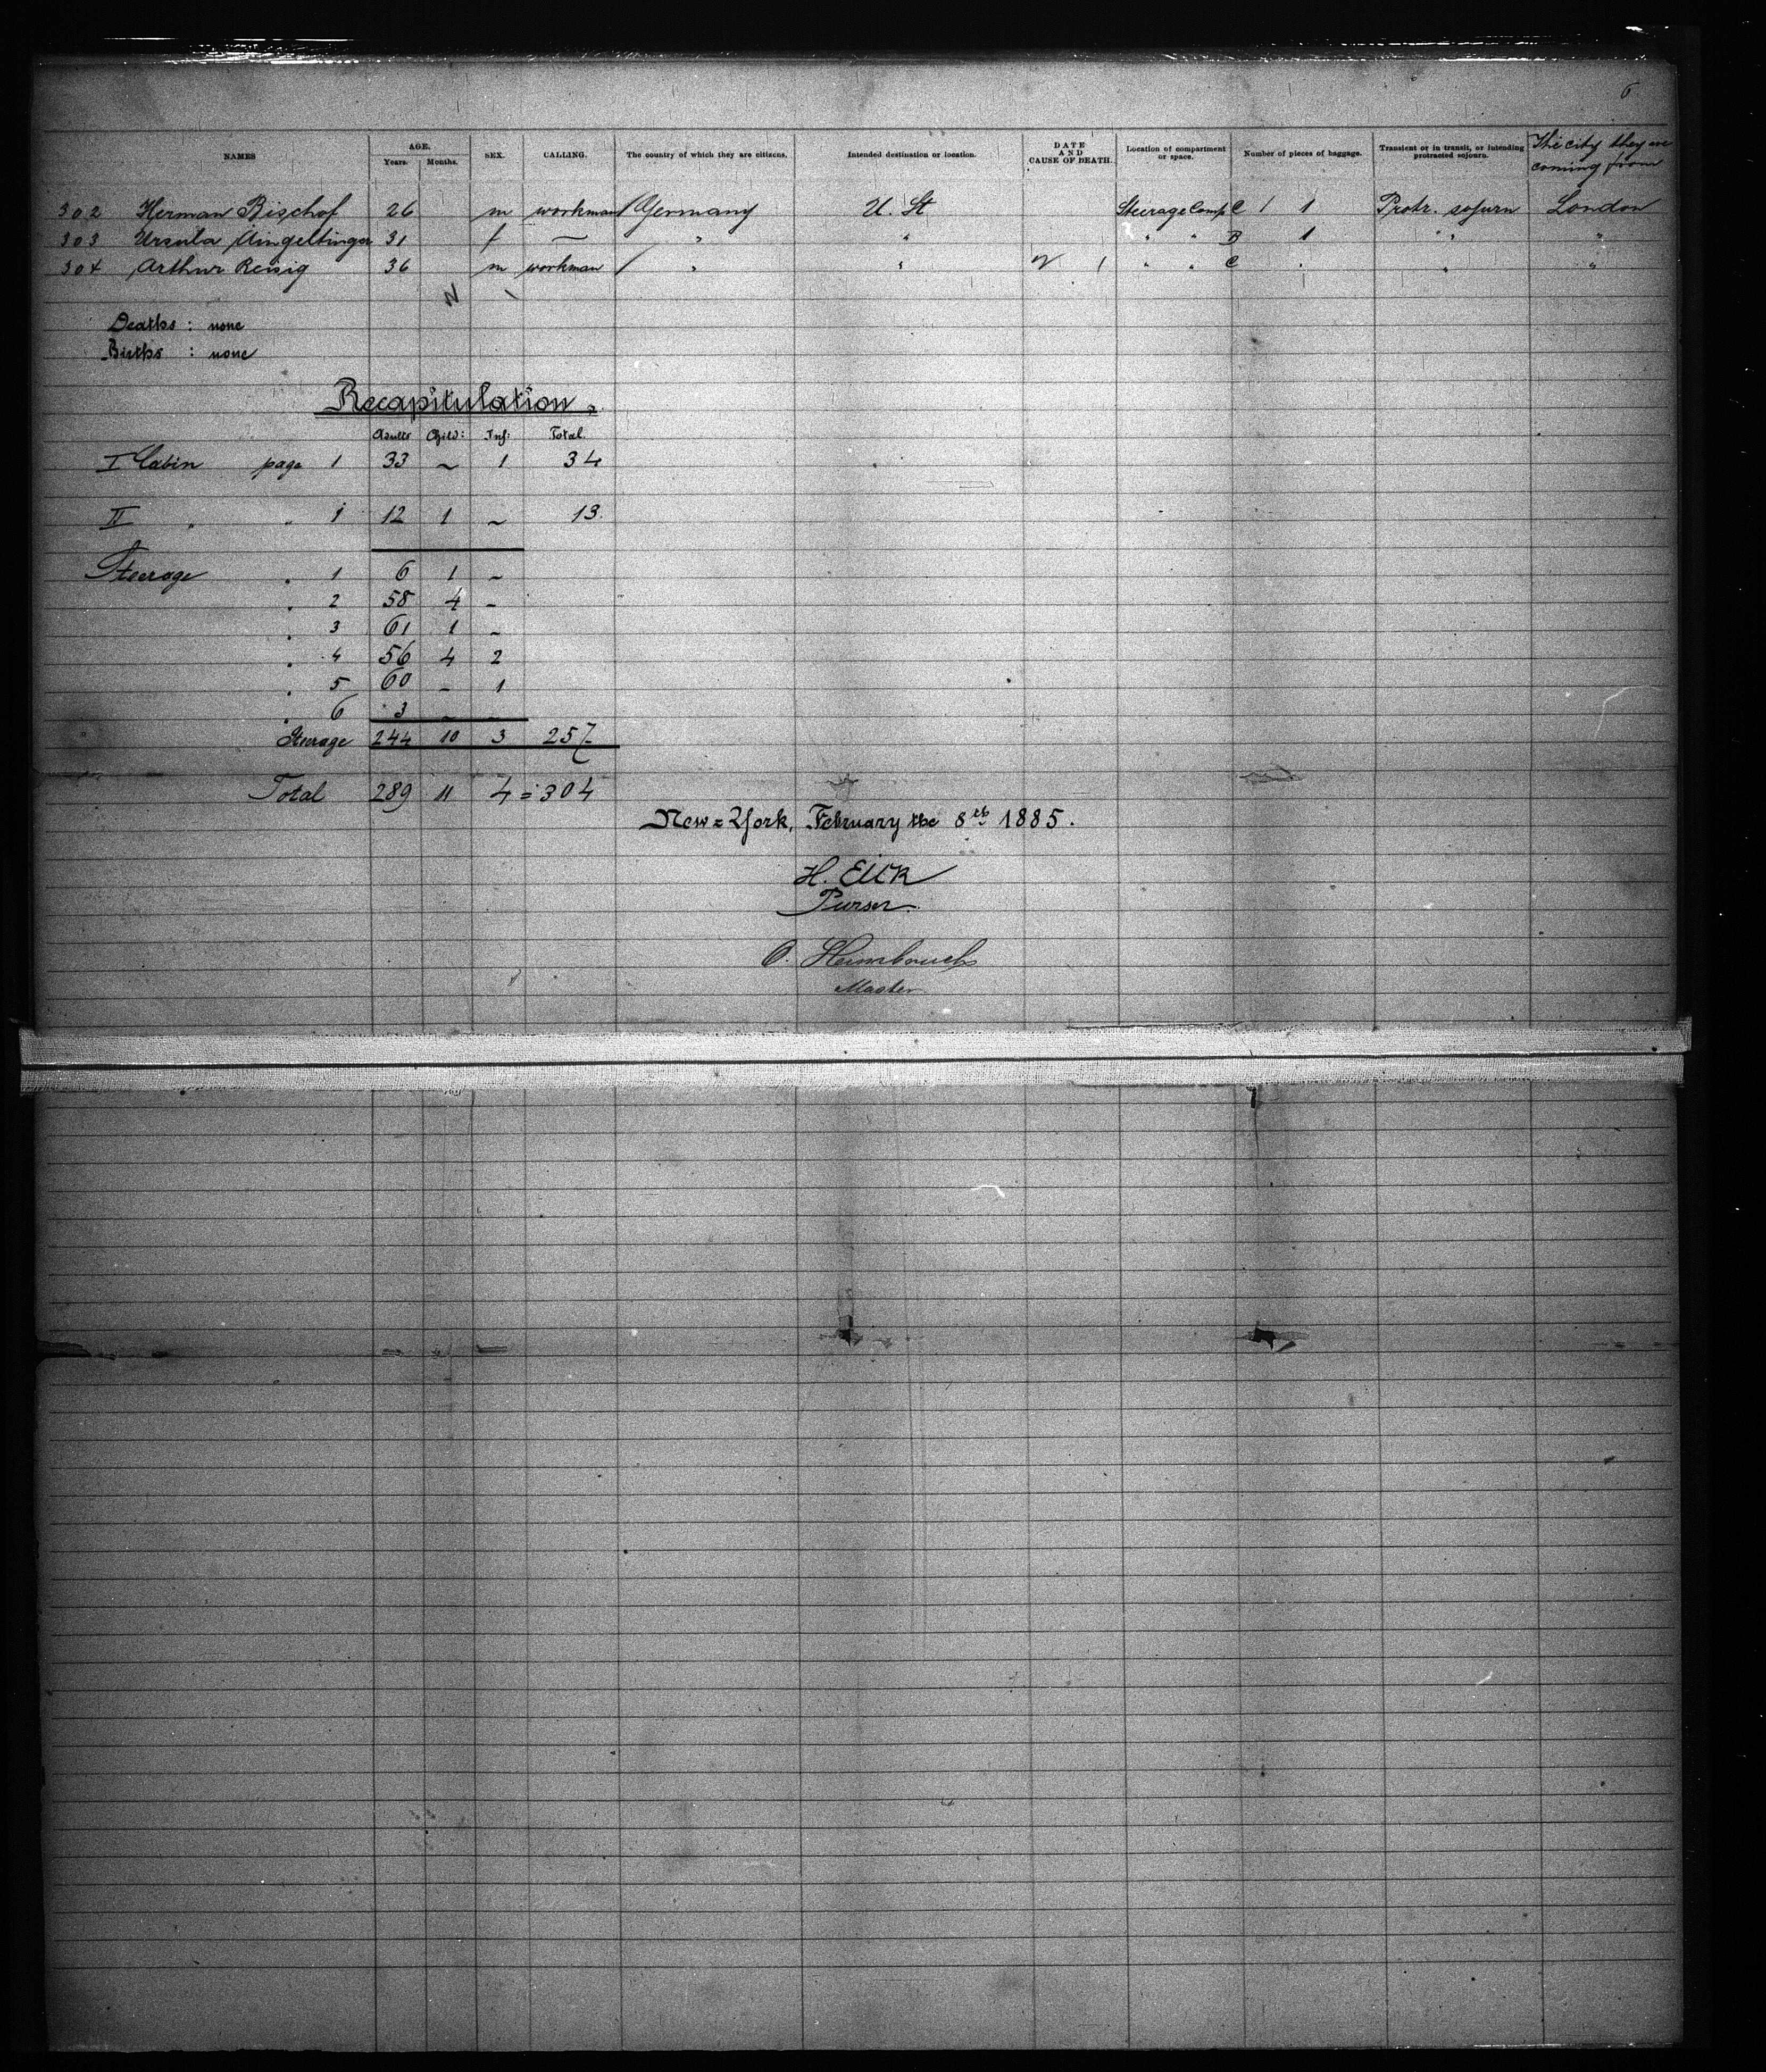 6
NAMES AGE. Years. Months. SEX. CALLING. The country of which they are citizens. Intended destination or location. DATE AND CAUSE OF DEATH. Location of compartment or space. Number of pieces of baggage. Transient or in transit, or intending protracted sojourn. The city they are coming from
302 Herman Bischof 26 m workman Germany U. St Steerage Comp C 1 1 Protr. sojurn London
303 Ursula 31 f — " " " " B 1 " " "
304 Arthur Reisig 36 m workman " " " " C " " "
Deaths : none
Births : none
Recapitulation.
Adults Child: Inf: Total.
I Cabin page 1 33 ~ 1 34
II " " 1 12 1 ~ 13
Steerage " 1 6 1 ~
" 2 58 4 -
" 3 61 1 -
" 4 56 4 2
" 5 60 - 1
" 6 3 - -
Steerage 244 10 3 257
Total 289 11 4 = 304
New=York, February the 8th 1885.
H. Eick
Purser.
Heimbruch
Master